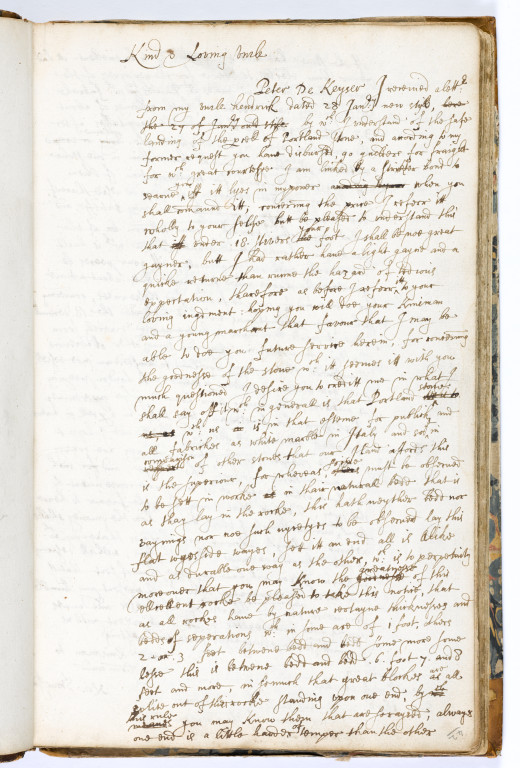 Kind & Loving unkle
Peter De Keyser I receved a lettr
from my unkle Hendrick dated 28 Janry new stile, here
the 27 of Janry by wch I understand of the safe
landing of the peell of Portland stone, and according to my
former request you have disbursed, ye gilders for fraight
for wch great courtesse I am linked by a further bond to
searve you iff itt lyes in my power when you
shall comande itt, conserning the price I referr itt
wholly to your selfe but be pleased to understand this
that under 18 stivers the foot I shall be not great
gayner, butt I had rather have a light gayne and a
quicke returne than runne the hazard of tedious
expectation, therefore as before I referr itt to your
loving iudgment hoping you will doe your kinsman
and a young marchant that favour that I may be
able to doe you future service herein, for conserning
the goodnesse of the stone wch itt seemes itt with you
much questioned I desire you to creditt me in what I
shall say off itt wch in generall is that Portland stone
wth us is in that esteeme for publick and
all fabrickes as white marble in Italy and soe in
comparison of other stones that our Iland affords this
is the superiour, for whereas others must be observed
to be sett in worke in their naturall bedd that is
as they lay in the rocke, this hath neyther bedd nor
vaynes nor noe such nycetyes to be observed lay this
flatt wayes side wayes, sett itt on end all is alike
and as durable one way as the other, wch is to perpetuity
moreover that you may know the greatnesse of this
excellent rocke be pleased to take this notice, that
as all rockes have by nature certayne thicknesses and
bedds of seperations wch in some are of 1 foot, others
2 or 3 feet betwene bedd and bedd some more some
lesse this is betwene bedd and bedd 6 foot 7 and 8
feet and more, in somuch that great blockes are all
splite out of the rocke standing upon one end, by
this rule you may know them that are forayed, always
one end is a little harder temper than the other